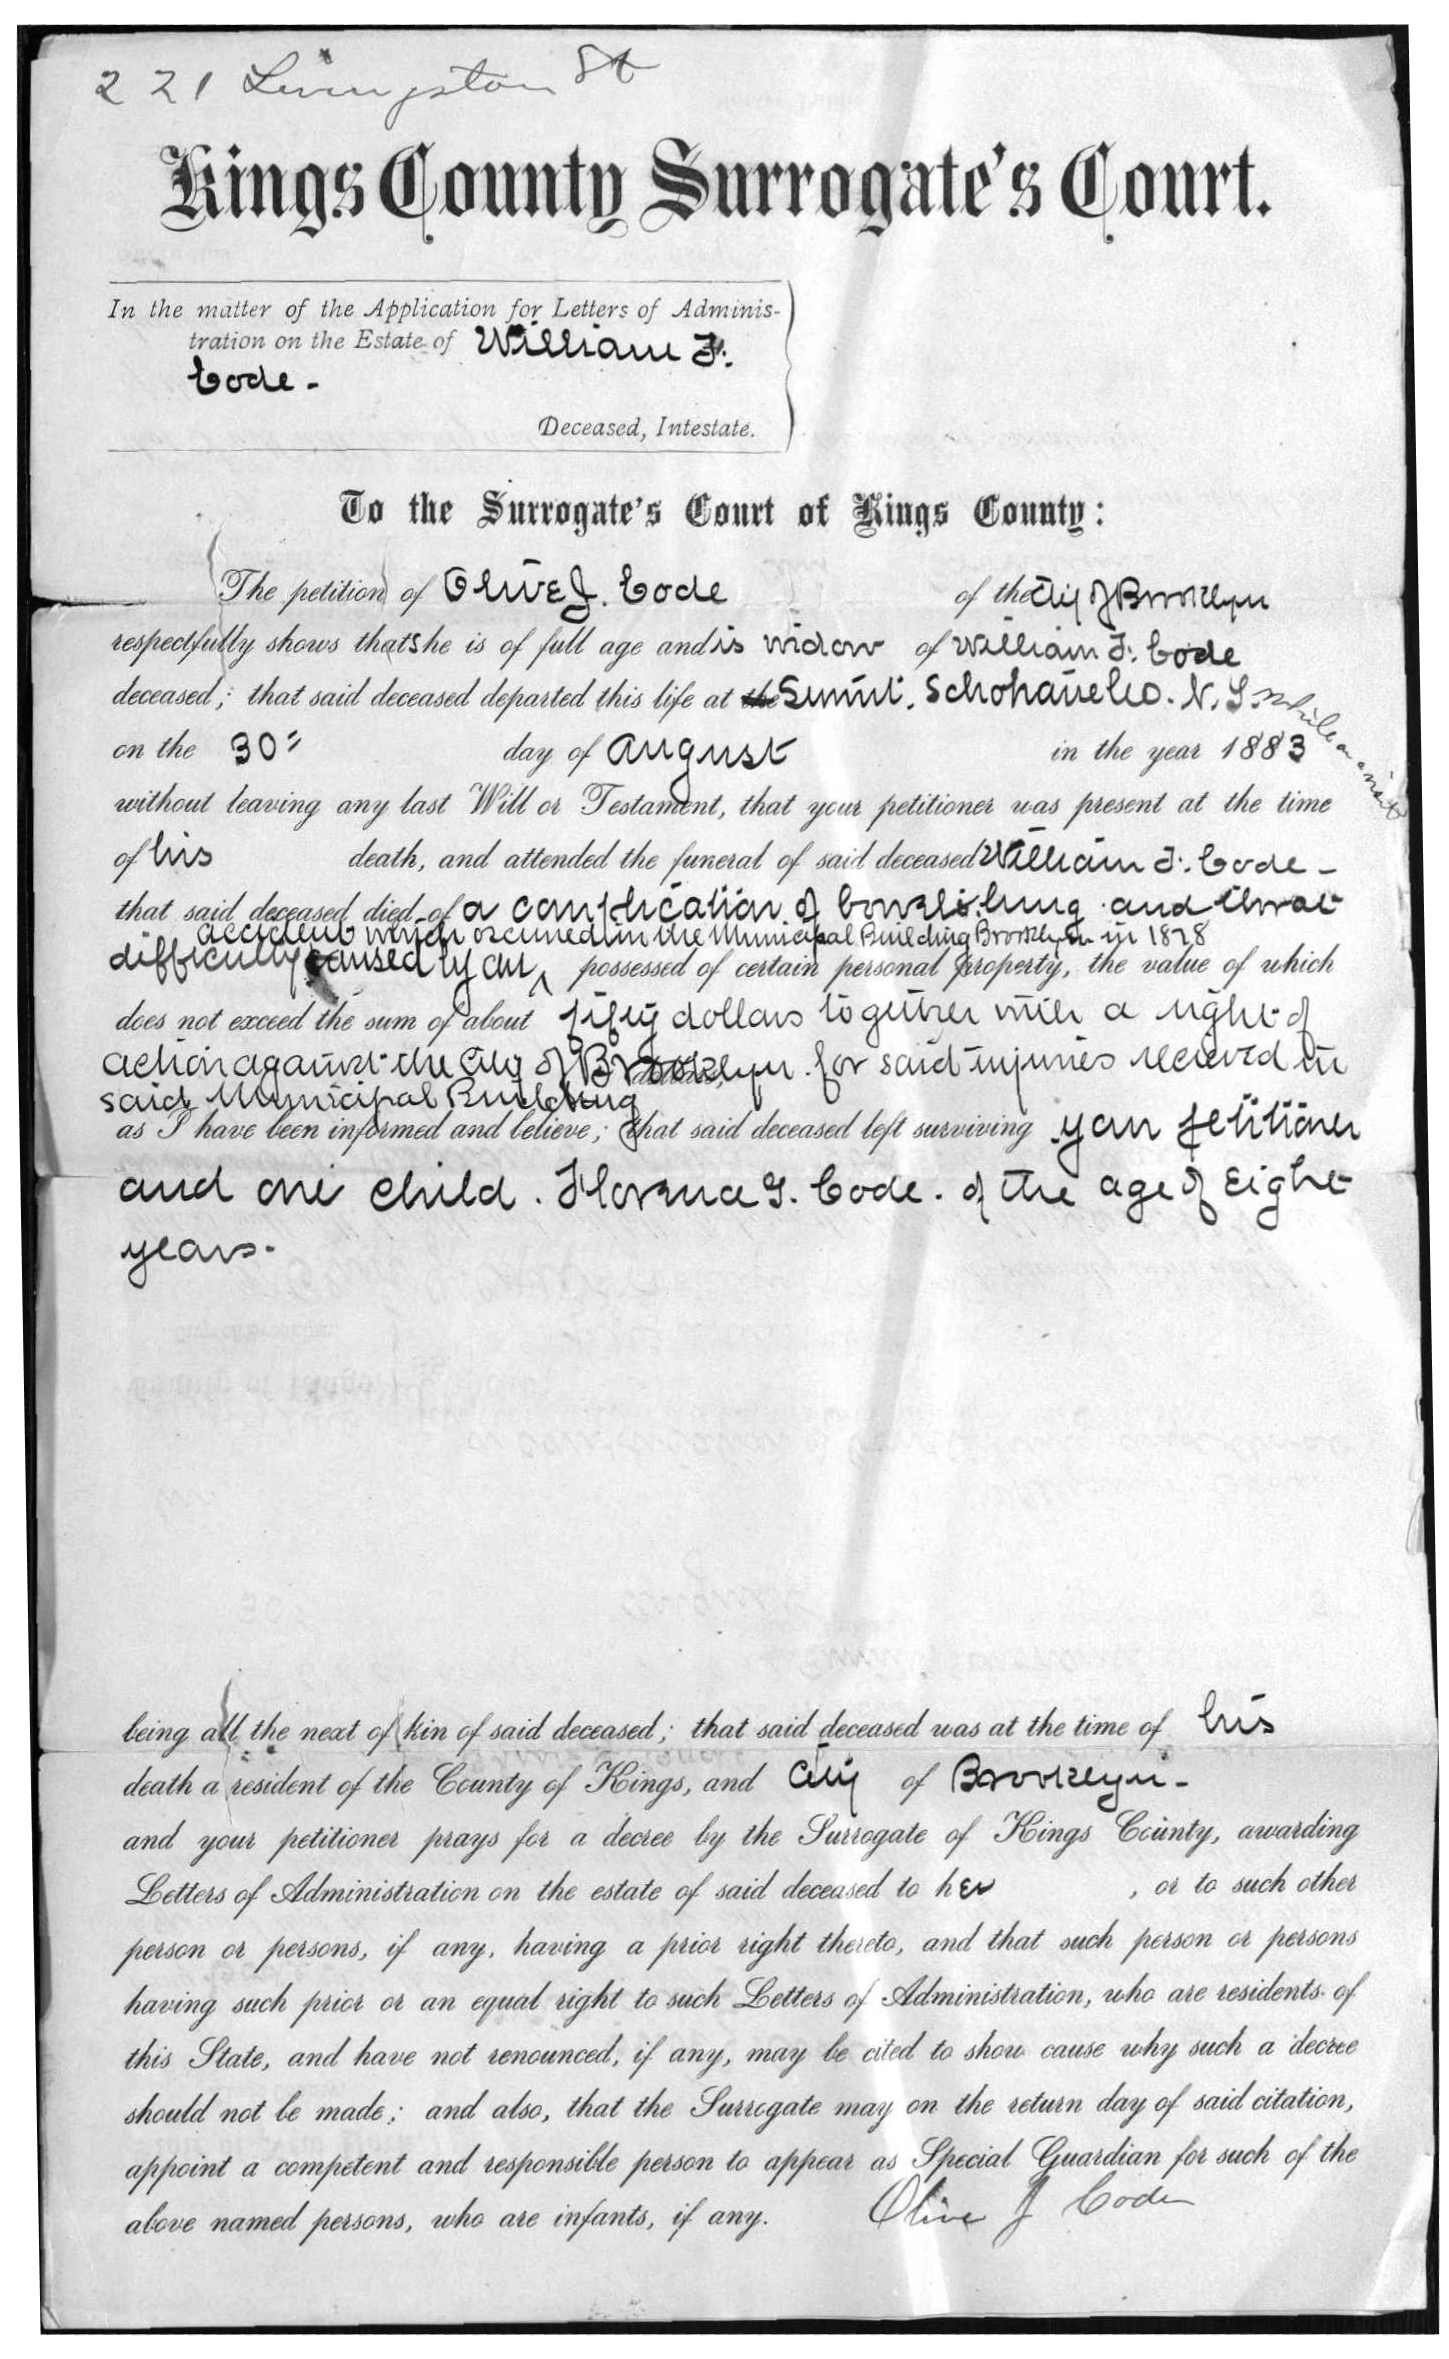 221 Livingston St
Kings County Surrogate's Court.
In the matter of the Application for Letters of Adminis-
tration on the Estate of William F.
Code -
Deceased, Intestate.
To the Surrogate's Court of Kings County:
The petition of Olive J. Code of the City of Brooklyn
respectfully shows that she is of full age and is widow of William F. Code
deceased; that said deceased departed this life at the Summit, Schoharie Co. N.Y. while on a visit
on the 30" day of August in the year 1883
without leaving any last Will or Testament, that your petitioner was present at the time
of his death, and attended the funeral of said deceased William F. Code -
that said deceased died of a complication of bowels, lung and throat
accident which occurred in the Municipal Building Brooklyn in 1878
difficulty caused by an ^ possessed of certain personal property, the value of which
does not exceed the sum of about fifty dollars together with a right of
action against the City of Brooklyn for said injuries recieved in
dollars,
said Municipal Building
as I have been informed and believe; that said deceased left surviving your petitioner
and one child. Florence G. Code. of the age of Eight
years.
being all the next of kin of said deceased; that said deceased was at the time of his
death a resident of the County of Kings, and City of Brooklyn -
and your petitioner prays for a decree by the Surrogate of Kings County, awarding
Letters of Administration on the estate of said deceased to her , or to such other
person or persons, if any, having a prior right thereto, and that such person or persons
having such prior or an equal right to such Letters of Administration, who are residents of
this State, and have not renounced, if any, may be cited to show cause why such a decree
should not be made; and also, that the Surrogate may on the return day of said citation,
appoint a competent and responsible person to appear as Special Guardian for such of the
above named persons, who are infants, if any. Olive J Code